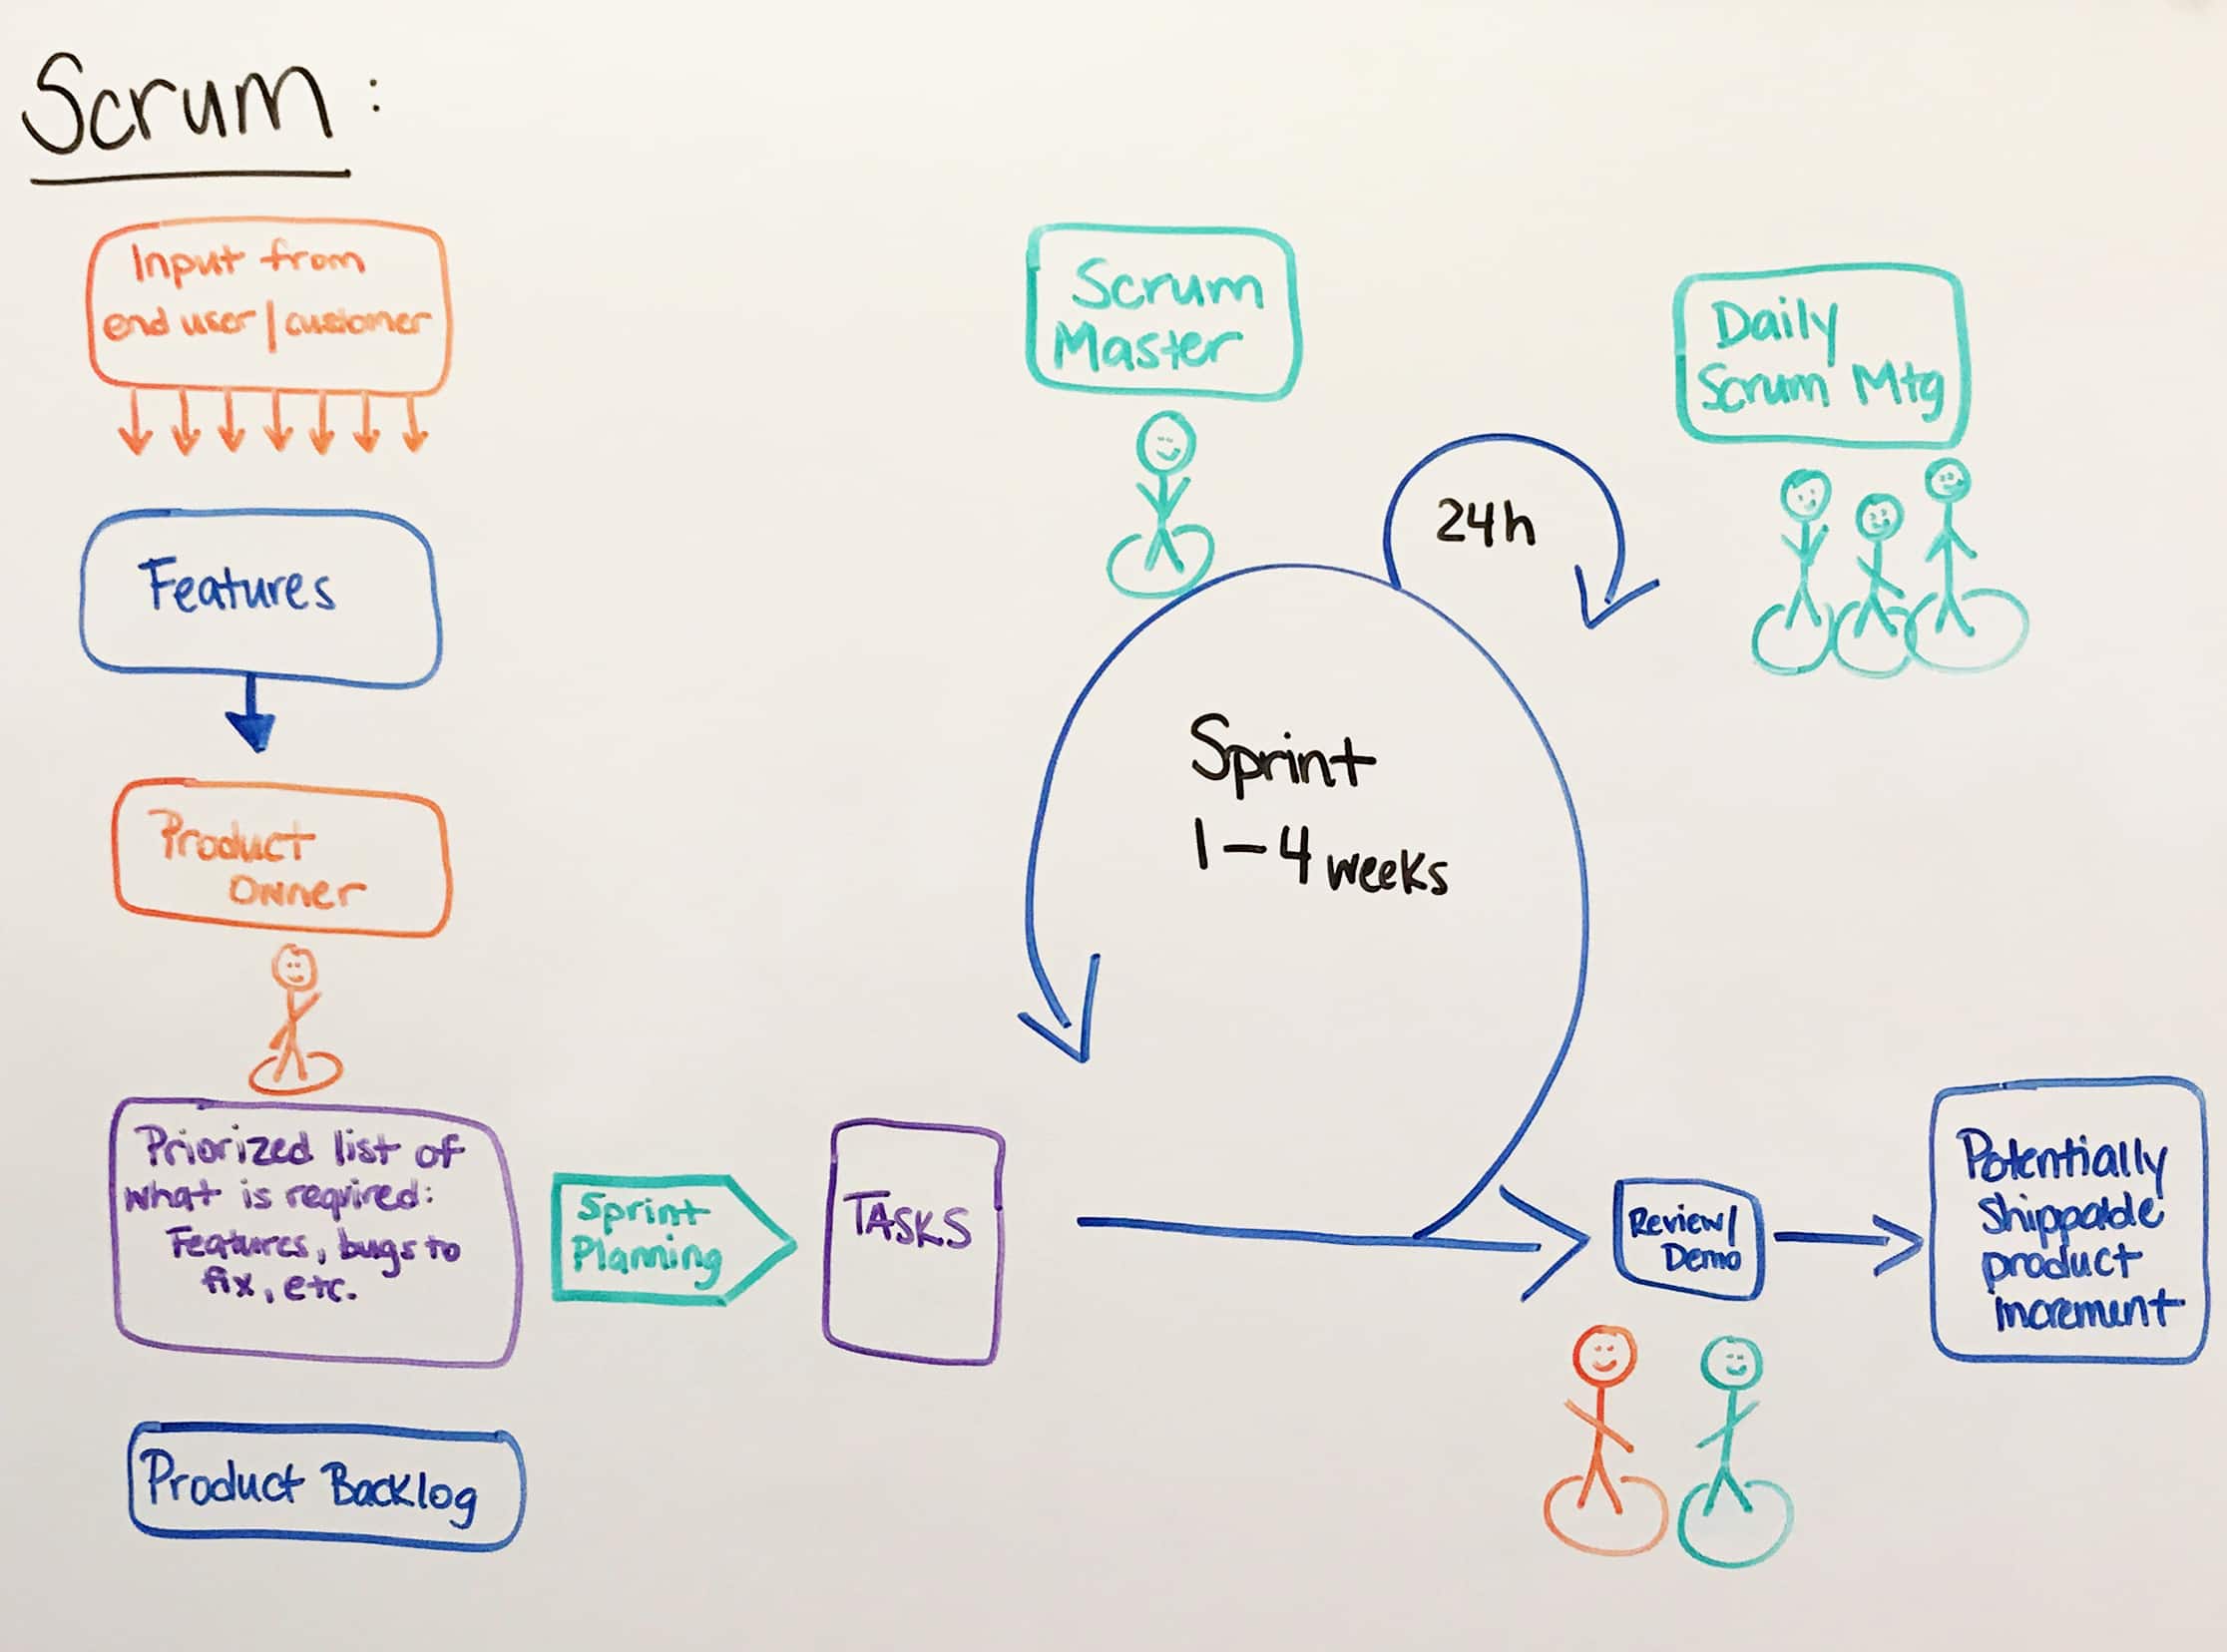 Scrum:
Input from
end user/customer
Features
Product
Owner
Priorized list of
what is required:
Features, bugs to
fix, etc.
Product Backlog
Sprint
Planning
TASKS
Scrum
Master
Daily
Scrum Mtg
24h
Sprint
1-4 weeks
Review/
Demo
Potentially
shippable
product
increment